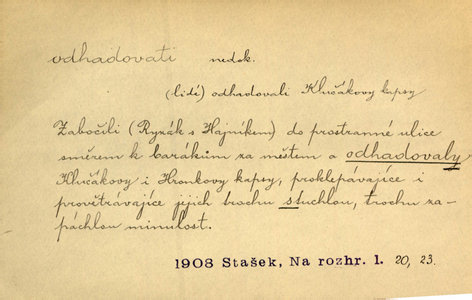 odhadovati nedok.
(lidé) odhadovali Klučákovy kapsy
Zabočili (Ryzák s Hajníkem) do prostranné ulice
směrem k barákům za městem a odhadovaly
Klučákovy i Hronkovy kapsy, proklepávajíce i
provětrávajíce jejich trochu stuchlou, trochu za-
páchlou minulost.
1908 Stašek, Na rozhr. 1. 20, 23.